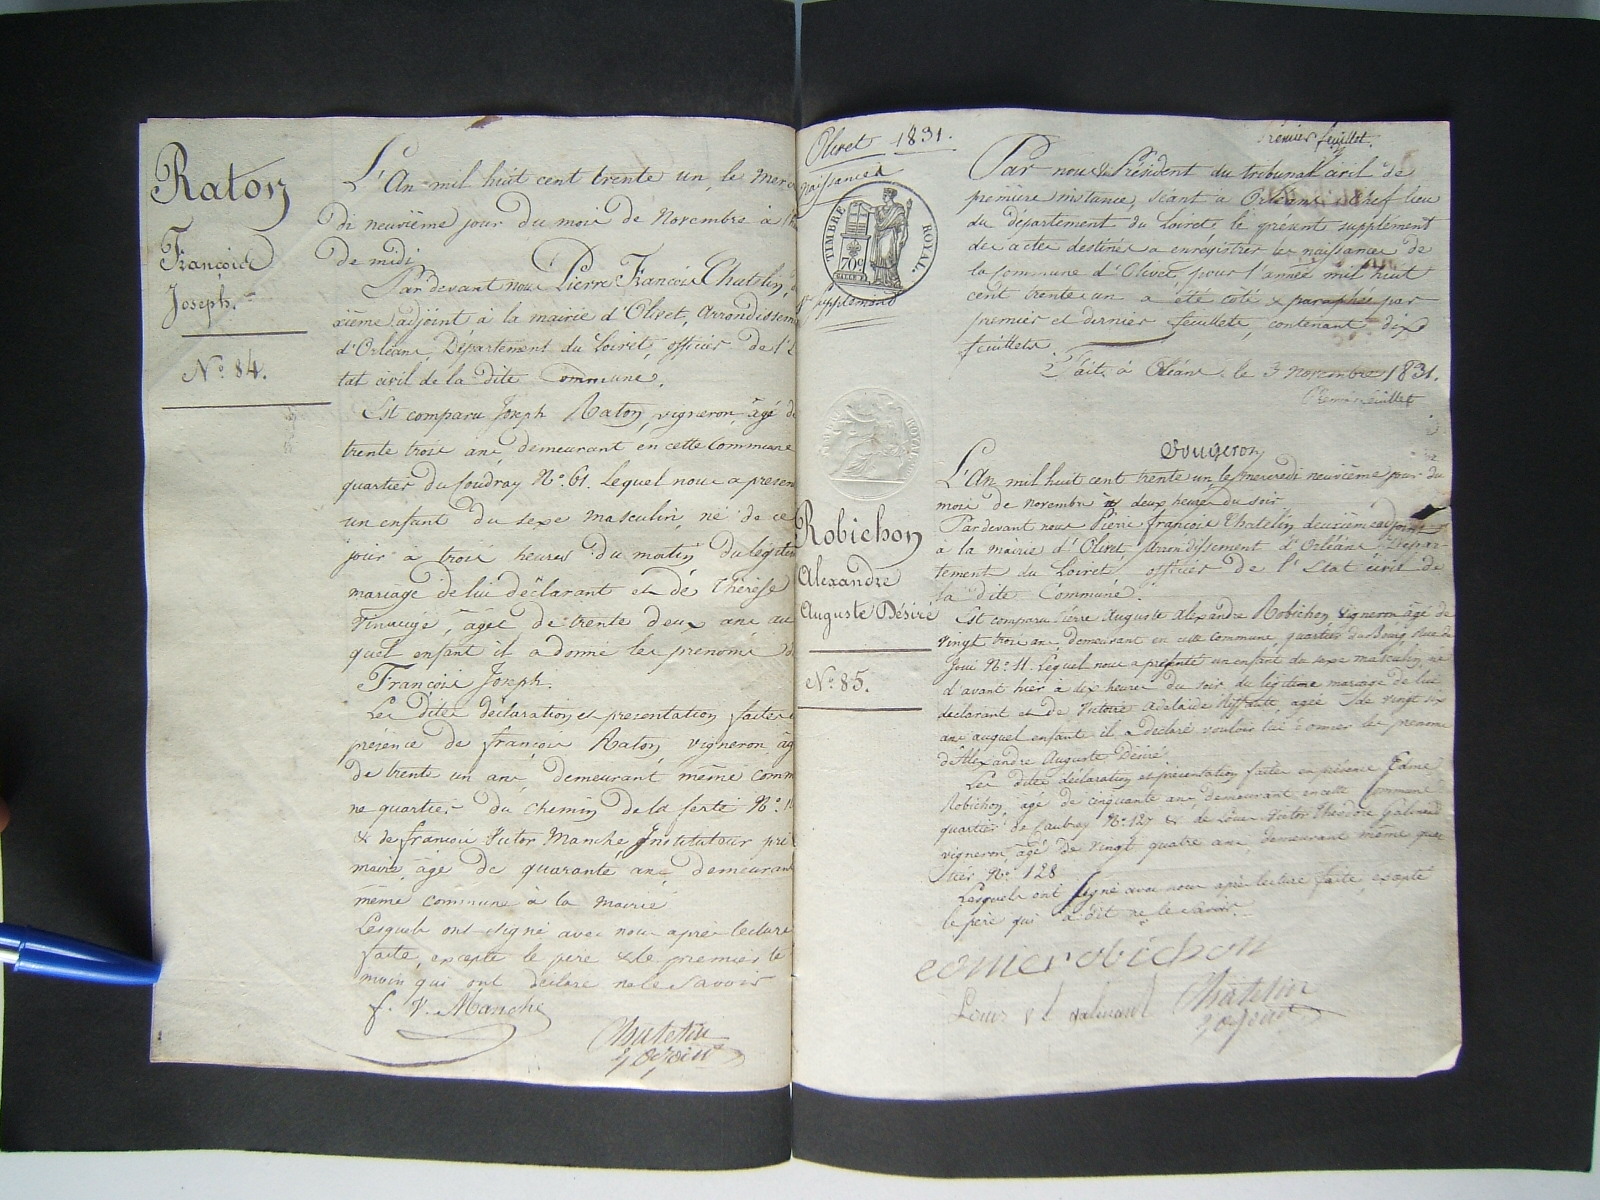 Raton
François
Joseph.
N.° 84.
L'An mil huit cent trente un, le Mer
di neuvième jour du mois de Novembre à
de midi
Par devant nous Pierre François Chatelin,
xième adjoint à la mairie d'Olivet, Arrondissem
d'Orléans, Département du Loiret, officier de l'é
tat civil de la dite Commune.
Est comparu Joseph Raton, vigneron, âgé de
trente trois ans, demeurant en cette Commune
quartier du Coudray N.° 61. Lequel nous a présen
un enfant du sexe masculin, né de ce
jour à trois heures du matin du légitim
mariage de lui déclarant et de Thérèse
âgée de trente deux ans au
quel enfant il a donné les prénoms d
François Joseph.
Les dites déclaration et présentation faites
présence de françois Raton, vigneron, âg
de trente un ans, demeurant même comm
ne quartier du chemin de la ferté N.°
& de françois Victor Manche Instituteur pri
maire, âgé de quarante ans, demeurant
même commune à la mairie
Lesquels ont signé avec nous après lecture
faite, excepté le père & le premier té
moin qui ont déclaré ne le savoir
f. V. Manche
Chatelin
adjoint
Olivet 1831.
Naissances
TIMBRE ROYAL.
70c
Supplément
Premier feuillet.
Par nous Président du tribunal civil de
première instance, séant à Orléans chef lieu
du Département du Loiret le présent supplément
des actes destiné à enrégistrer les naissances de
la commune d'Olivet, pour l'année mil huit
cent trente un a été coté & paraphé par
premier et dernier feuillets, contenant dix
feuillets.
Fait à Orléans le 3 novembre 1831.
Robichon
Alexandre
Auguste Désiré
N.° 85.
L'An mil huit cent trente un, le mercredi neuvième jour du
mois de novembre à deux heures du soir
Par devant nous Pierre françois Chatelin deuxième adjoint
à la mairie d'Olivet, Arrondissement d'Orléans Dépar-
tement du Loiret officier de l'Etat civil de
la dite Commune.
Est comparu Pierre Auguste Alexandre Robichon vigneron âgé de
vingt trois ans, demeurant en cette commune quartier du Bourg Rue de
N.° 11. Lequel nous a présenté un enfant du sexe masculin, né
d'avant hier à dix heures du soir du légitime mariage de lui
déclarant et de Victoire Adelaide agée de vingt six
ans auquel enfant il a déclaré vouloir lui donner les prénoms
d'Alexandre Auguste Désiré
Les dites déclaration et présentation faites en présence Edme
Robichon, âgé de cinquante ans, demeurant en cette commune
quartier de N.° 127 & de Louis Victor Théodore Galinand
vigneron, âgé de vingt quatre ans, demeurant même quar
tier N.° 128
Lesquels ont signé avec nous après lecture faite, excepté
le père qui a dit ne le savoir.
edme robichon
Louis
Chatelin
adjoint